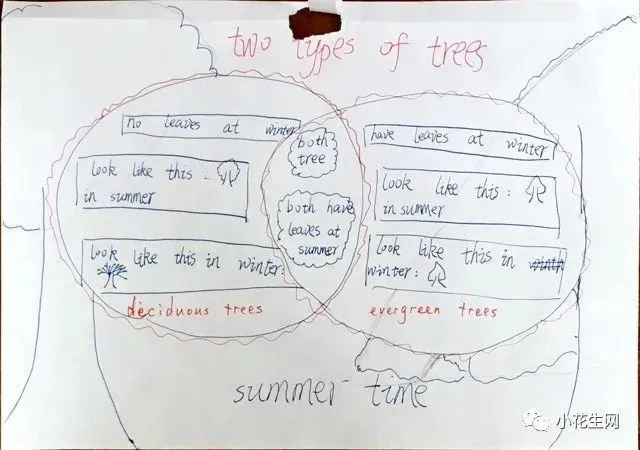 two types of trees
no leaves at winter
look like this
in summer
look like this in winter:
deciduous trees
both
tree
both have
leaves at
summer
have leaves at winter
look like this:
in summer
look like this in
winter:
evergreen trees
summer time
小花生网